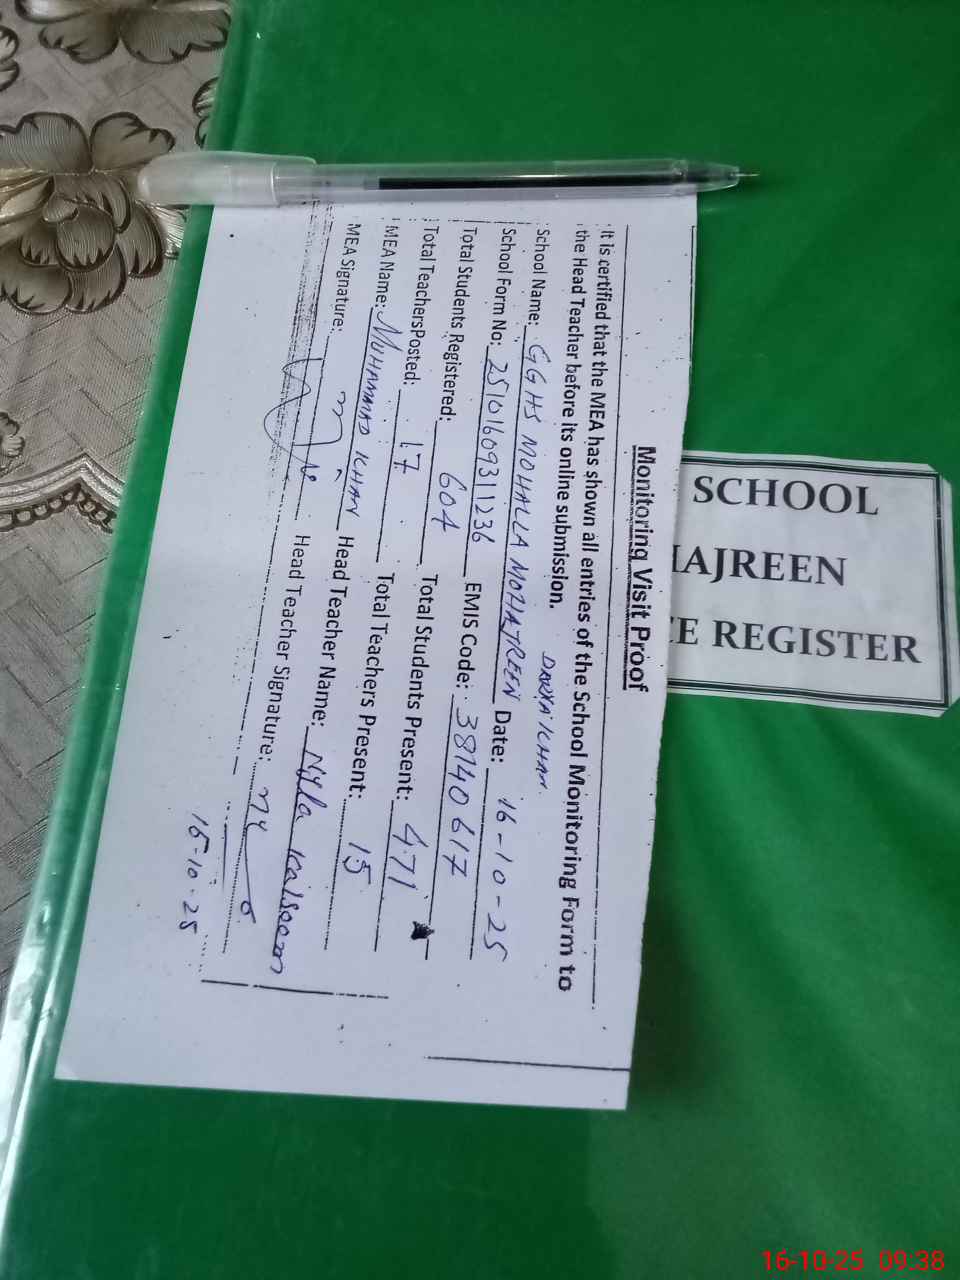 Monitoring Visit Proof
It is certified that the MEA has shown all entries of the School Monitoring Form to
the Head Teacher before its online submission.
DARYA KHAN
School Name: GGHS MOHALLA MOHAJREEN Date: 16-10-25
School Form No: 2510160931 1236 EMIS Code: 38140617
Total Students Registered: 604 Total Students Present: 471
Total TeachersPosted: 17 Total Teachers Present: 15
MEA Name: MUHAMMAD KHAN Head Teacher Name: Nyla Kalsoom
MEA Signature: Head Teacher Signature:
16-10-25
SCHOOL
HAJREEN
CE REGISTER
16-10-25 09:38